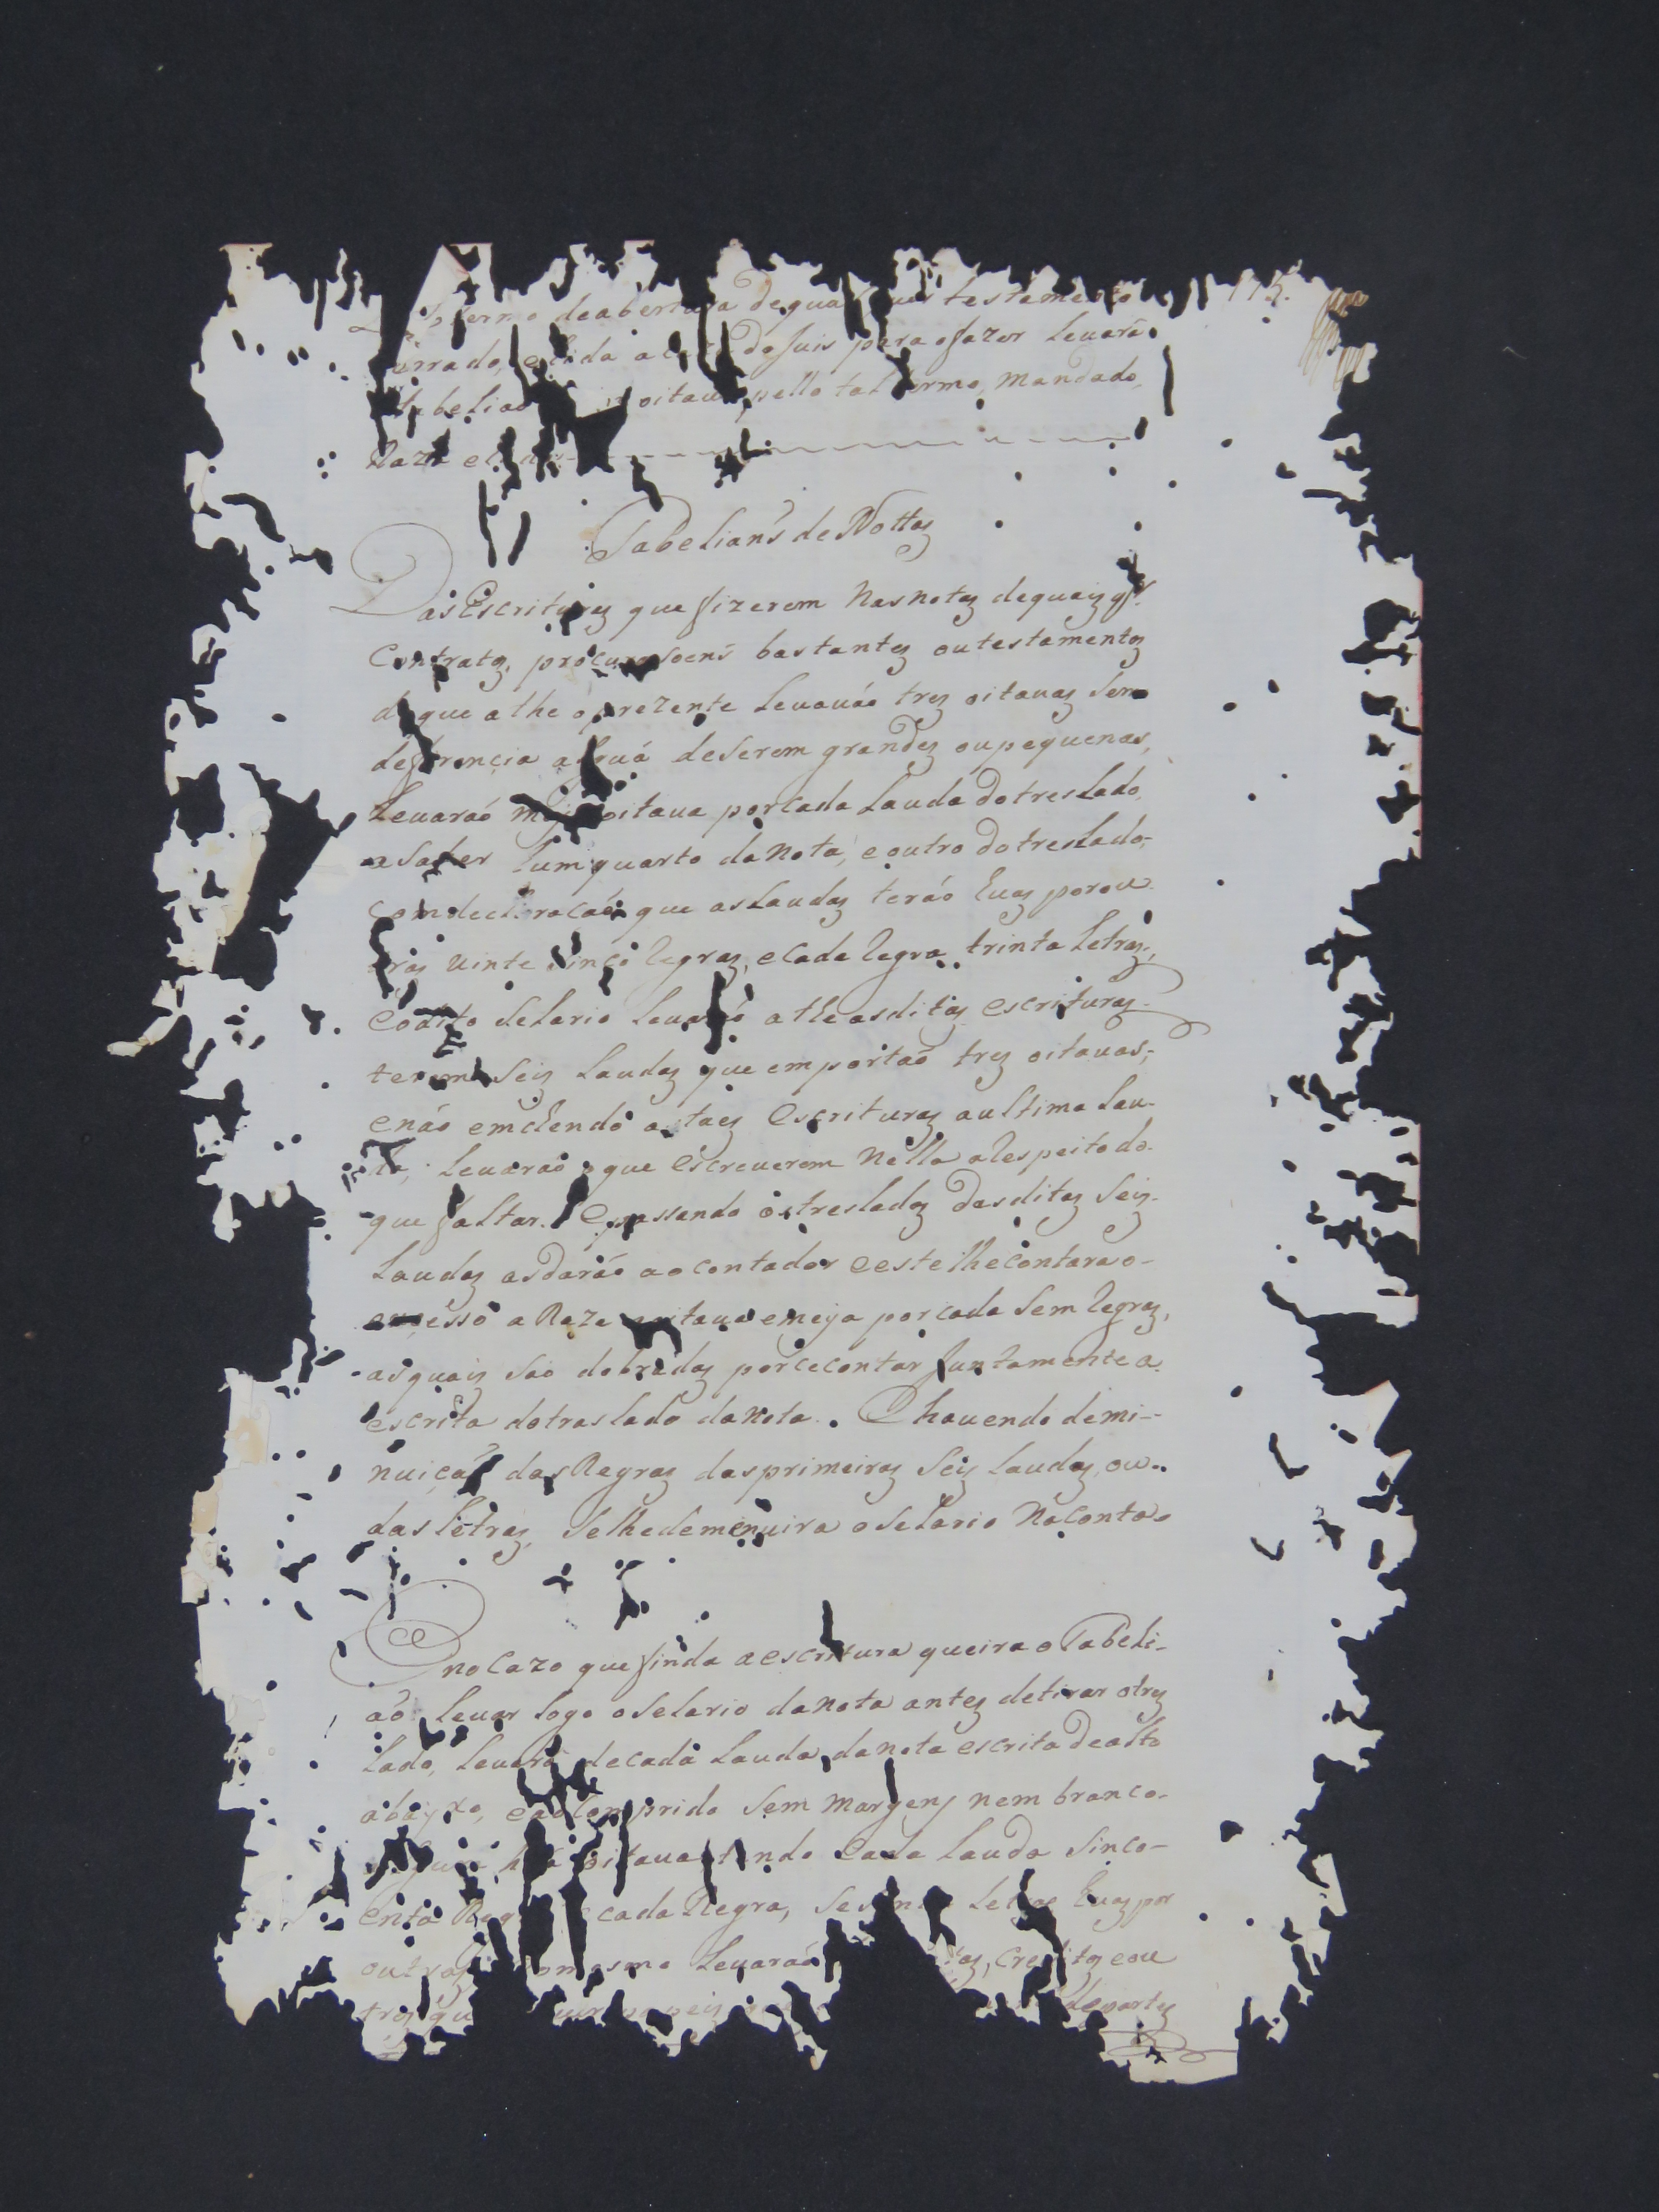 115.
termo de abertura de qua quer testamento
sarrado, e hida a caza do Juis para o fazer levará o
tabeliaõ oitava pello tal termo, mandado,
Raza e
Tabelians de Nottas
Das Escrituras que fizerem nas notas de quais qr.
Contratos, procurasoens bastantes ou testamentos
de que athe o prezente levavão tres oitavas sem
deferencia algua de serem grandes ou pequenas,
Levaraó meya oitava por cada Lauda do treslado,
a saber hum quarto da nota, e outro do treslado,
com declaracaó que as Laudas teráo huas por ou
tras vinte sinco regras, e cada regra trinta Letras,
e o dito selario levaráo athe as ditas escrituras
terem seis Laudas que emportaó tres oitavas;
e náo emchendo as taes Escrituras a ultima Lau-
da, Levaráo o que escreverem nella a Respeito do
que faltar. E passando os treslados das ditas seis
Laudas as daráo ao contador e este lhe contara o
excesso a Raza oitava e meya por cada sem regras,
as quais são dobradas por ce contar juntamente a
escrita do traslado da Nota. E havendo demi-
nuiçaó das Regras das primeiras seis Laudas, ou
das letras, se lhe demenuira o selario na conta
E no Cazo que finda a escritura queira o Tabeli-
aó levar logo o selario da nota antes de tirar o tres
lado, levará de cada Lauda da nota escrita de alto
abayxo, e ao comprido sem margens nem branco
oitava tendo cada lauda sinco-
enta Reg cada Regra, sesenta Letras huas por
outras o mesmo Levaraó creditos e ou
tros qu papeis de partes